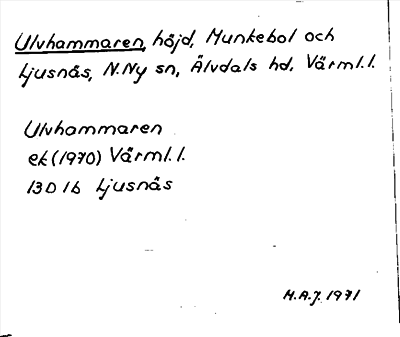 Ulvhammaren, höjd, Munkebol och
Ljusnäs, N.Ny sn, Älvdals hd, Värml.l.
Ulvhammaren
ek (1970) Värml.l.
13D 1b Ljusnäs
M.A.J. 1971